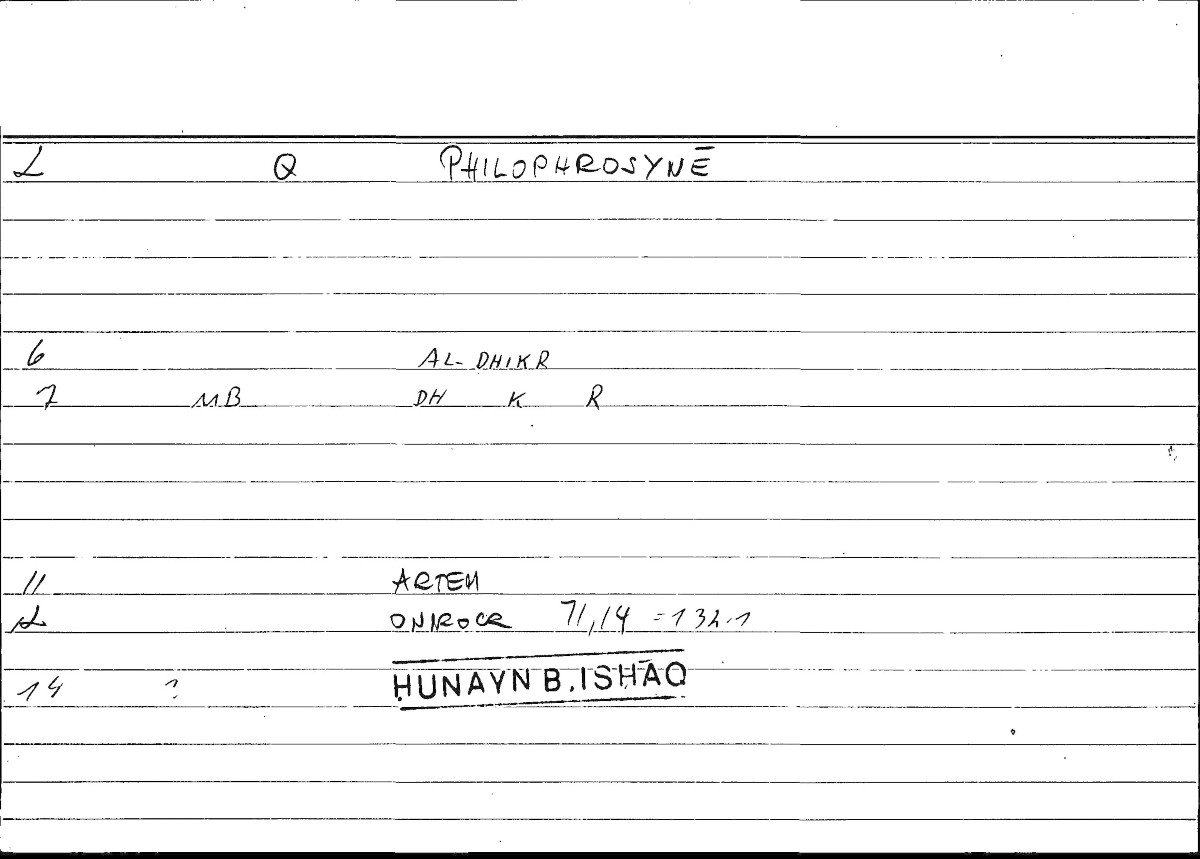 L Q PHILOPHROSYNĒ
6 AL-DHIKR
7 MB DH K R
11 ARTEM
L ONIROCR 71,14 =132.1
14 ? ḤUNAYN B. ISḤĀQ